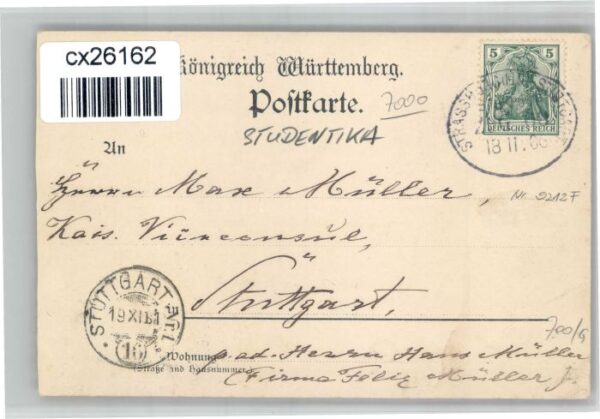 cx26162
Königreich Württemberg.
Postkarte.
7000
STUDENTIKA
5
DEUTSCHES REICH
STRASSB
18 11.
An
Herrn Max Müller,
Nr. 9212F
Kais. Viceconsul,
Stuttgart,
STUTTGART
19 XI
700/G
Wohnung
(Straße und Hausnummer)
p. ad. Herrn Hans Müller
(Firma Felix Müller